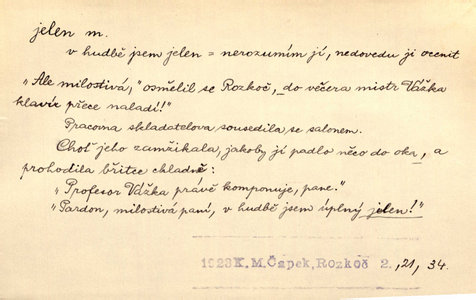 jelen m.
v hudbě jsem jelen = nerozumím jí, nedovedu ji ocenit
„Ale milostivá," osmělil se Rozkoč, „do večera mistr Vážka
klavír přece naladí!"
Pracovna skladatelova sousedila se salonem.
Choť jeho zamžikala, jakoby jí padlo něco do oka, a
prohodila břitce chladně:
„Profesor Vážka právě komponuje, pane."
„Pardon, milostivá paní, v hudbě jsem úplný jelen!"
1923 K.M.Čapek, Rozkoč 2, 21, 34.